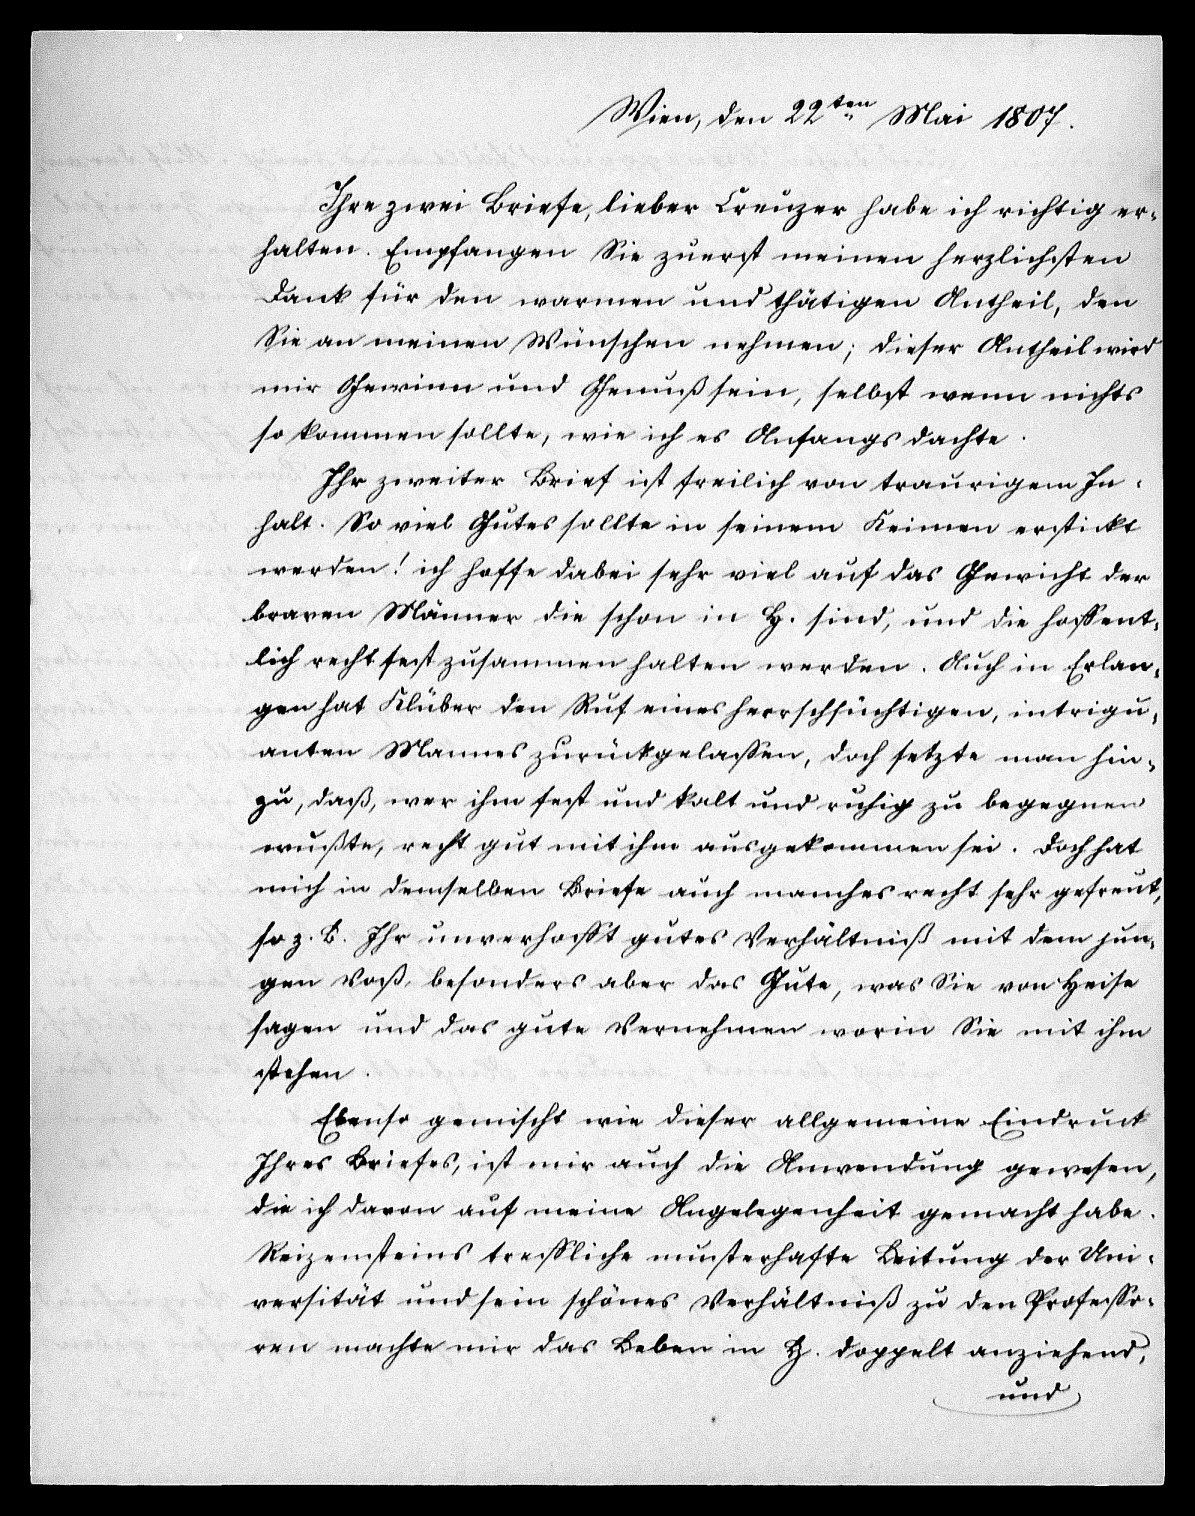 Wien, den 22ten Mai 1807.
Ihre zwei Briefe, lieber Creuzer habe ich richtig er-
halten. Empfangen Sie zuerst meinen herzlichsten
Dank für den warmen und thätigen Antheil, den
Sie an meinen Wünschen nehmen; dieser Antheil wird
mir Gewinn und Genuß sein, selbst wenn nichts
so kommen sollte, wie ich es Anfangs dachte.
Ihr zweiter Brief ist freilich von traurigem In-
halt. So viel Gutes sollte in seinem Keimen erstickt
werden! ich hoffe dabei sehr viel auf das Gewicht der
braven Männer die schon in H. sind, und die hoffent-
lich recht fest zusammen halten werden. Auch in Erlan-
gen hat Klüber den Ruf eines herrschsüchtigen, intrigu-
anten Mannes zurückgelassen, doch setzte man hin-
zu, daß, wer ihm fest und kalt und ruhig zu begegnen
wußte, recht gut mit ihm ausgekommen sei. Doch hat
mich in demselben Briefe auch manches recht sehr gefreut,
so z. B. Ihr unverhofft gutes Verhältniß mit dem jun-
gen Voß, besonders aber das Gute, was Sie von Heise
sagen und das gute Vernehmen worin Sie mit ihm
stehen.
Ebenso gemischt wie dieser allgemeine Eindruck
Ihres Briefes, ist mir auch die Anwendung gewesen,
die ich davon auf meine Angelegenheit gemacht habe.
Reizensteins treffliche musterhafte Leitung der Uni-
versität und sein schönes Verhältniß zu den Professo-
ren machte mir das Leben in H. doppelt anziehend,
und